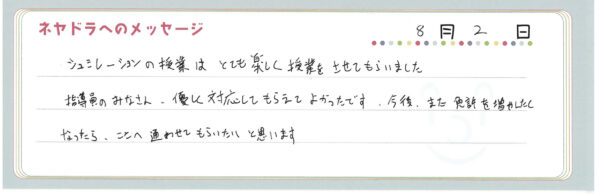 ネヤドラへのメッセージ
8月2日
シュミレーションの授業は とても楽しく授業をさせてもらいました
指導員のみなさん、優しく対応してもらえてよかったです、今後、また免許を増やしたく
なったら、ここへ通わせてもらいたいと思います